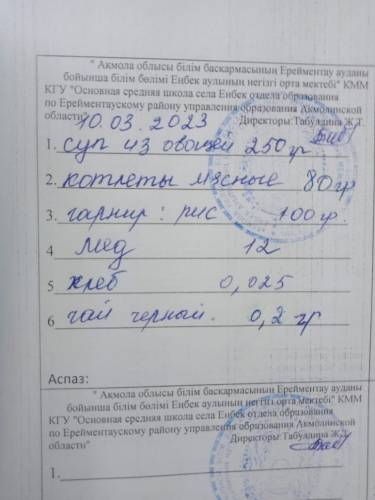 " Акмола облысы білім баскармасының Ерейментау ауданы
бойынша білім бөлімі Еңбек аулының негізгі орта мектебі" КММ
КГУ "Основная средняя школа села Енбек отдела образования
по Ерейментаускому району управления образования Акмолинской
области" Директоры: Табулдина Ж.Т.
10.03.2023
1. суп из овощей 250 гр
2. котлеты мясные 80 гр
3. гарнир: рис 100 гр.
4 мед 12
5 хлеб 0,025
6 чай черный. 0,2 гр
Аспаз:
" Акмола облысы білім баскармасының Ерейментау ауданы
бойынша білім бөлімі Еңбек аулының негізгі орта мектебі" КММ
КГУ "Основная средняя школа села Енбек отдела образования
по Ерейментаускому району управления образования Акмолинской
области" Директоры: Табулдина Ж.Т
1.